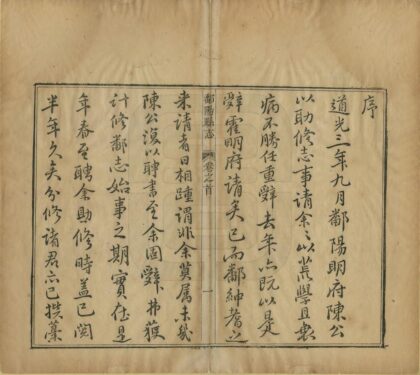 序
道光三年九月鄱陽明府陳公
以助修志事請余余以荒學且衰
病不勝任重辭去年亦既以是
辭霍明府請矣已而鄱紳耆之
來請者日相踵謂非余莫屬未幾
陳公復以聘書至余固辭弗獲
計修鄱志始事之期實在是
年春至聘余助修時蓋已閱
半年久矣分修諸君亦已撰藁
鄱陽縣志
卷之首
一